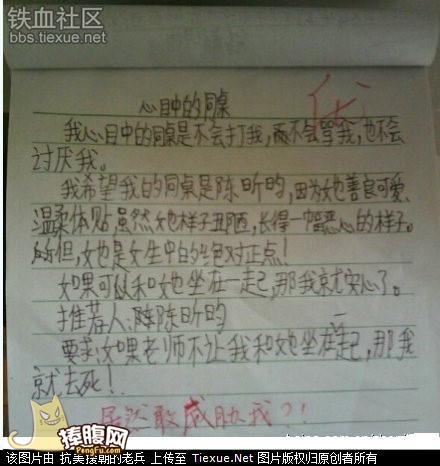 铁血社区
bbs.tiexue.net
心目中的同桌
我心目中的同桌是不会打我,不会骂我,也不会
讨厌我。
我希望我的同桌是陈昕昀,因为她善良可爱、
温柔体贴,虽然她样子丑陋,长得一幅恶心的样子。
但,她也是女生中的绝对正点!
如果可以和她坐在一起,那我就安心了。
推荐人:陈昕昀
要求:如果老师不让我和她坐在一起,那我
就去死!
居然敢威胁我?!
捧腹网
PengFu.com
该图片由 抗美援朝的老兵 上传至 Tiexue.Net 图片版权归原创者所有